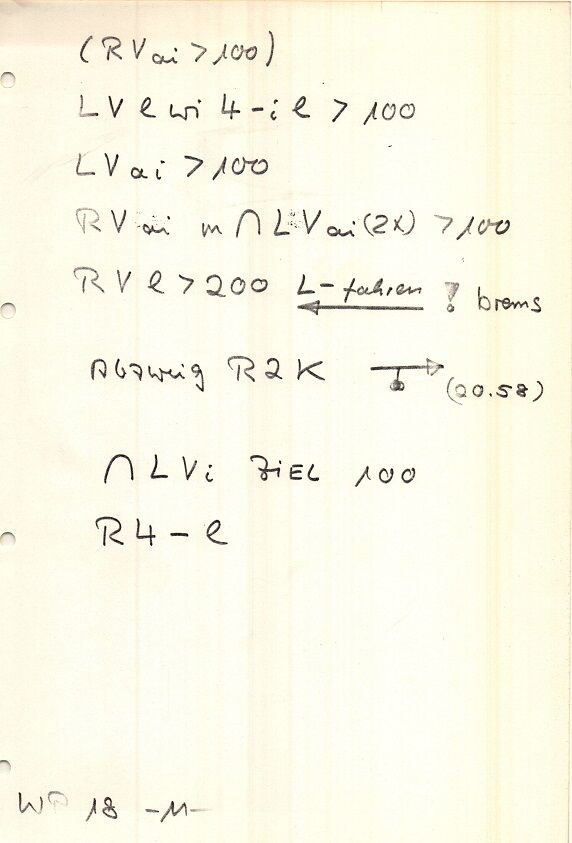 (RVai > 100)
LV e wi 4-ie > 100
LVai > 100
RVai m ∩ LVai (2x) > 100
RVe > 200 L-fahren ! brems
Abzweig R2K (20.58)
∩ LVi ZIEL 100
R4-e
WP 18 -11-